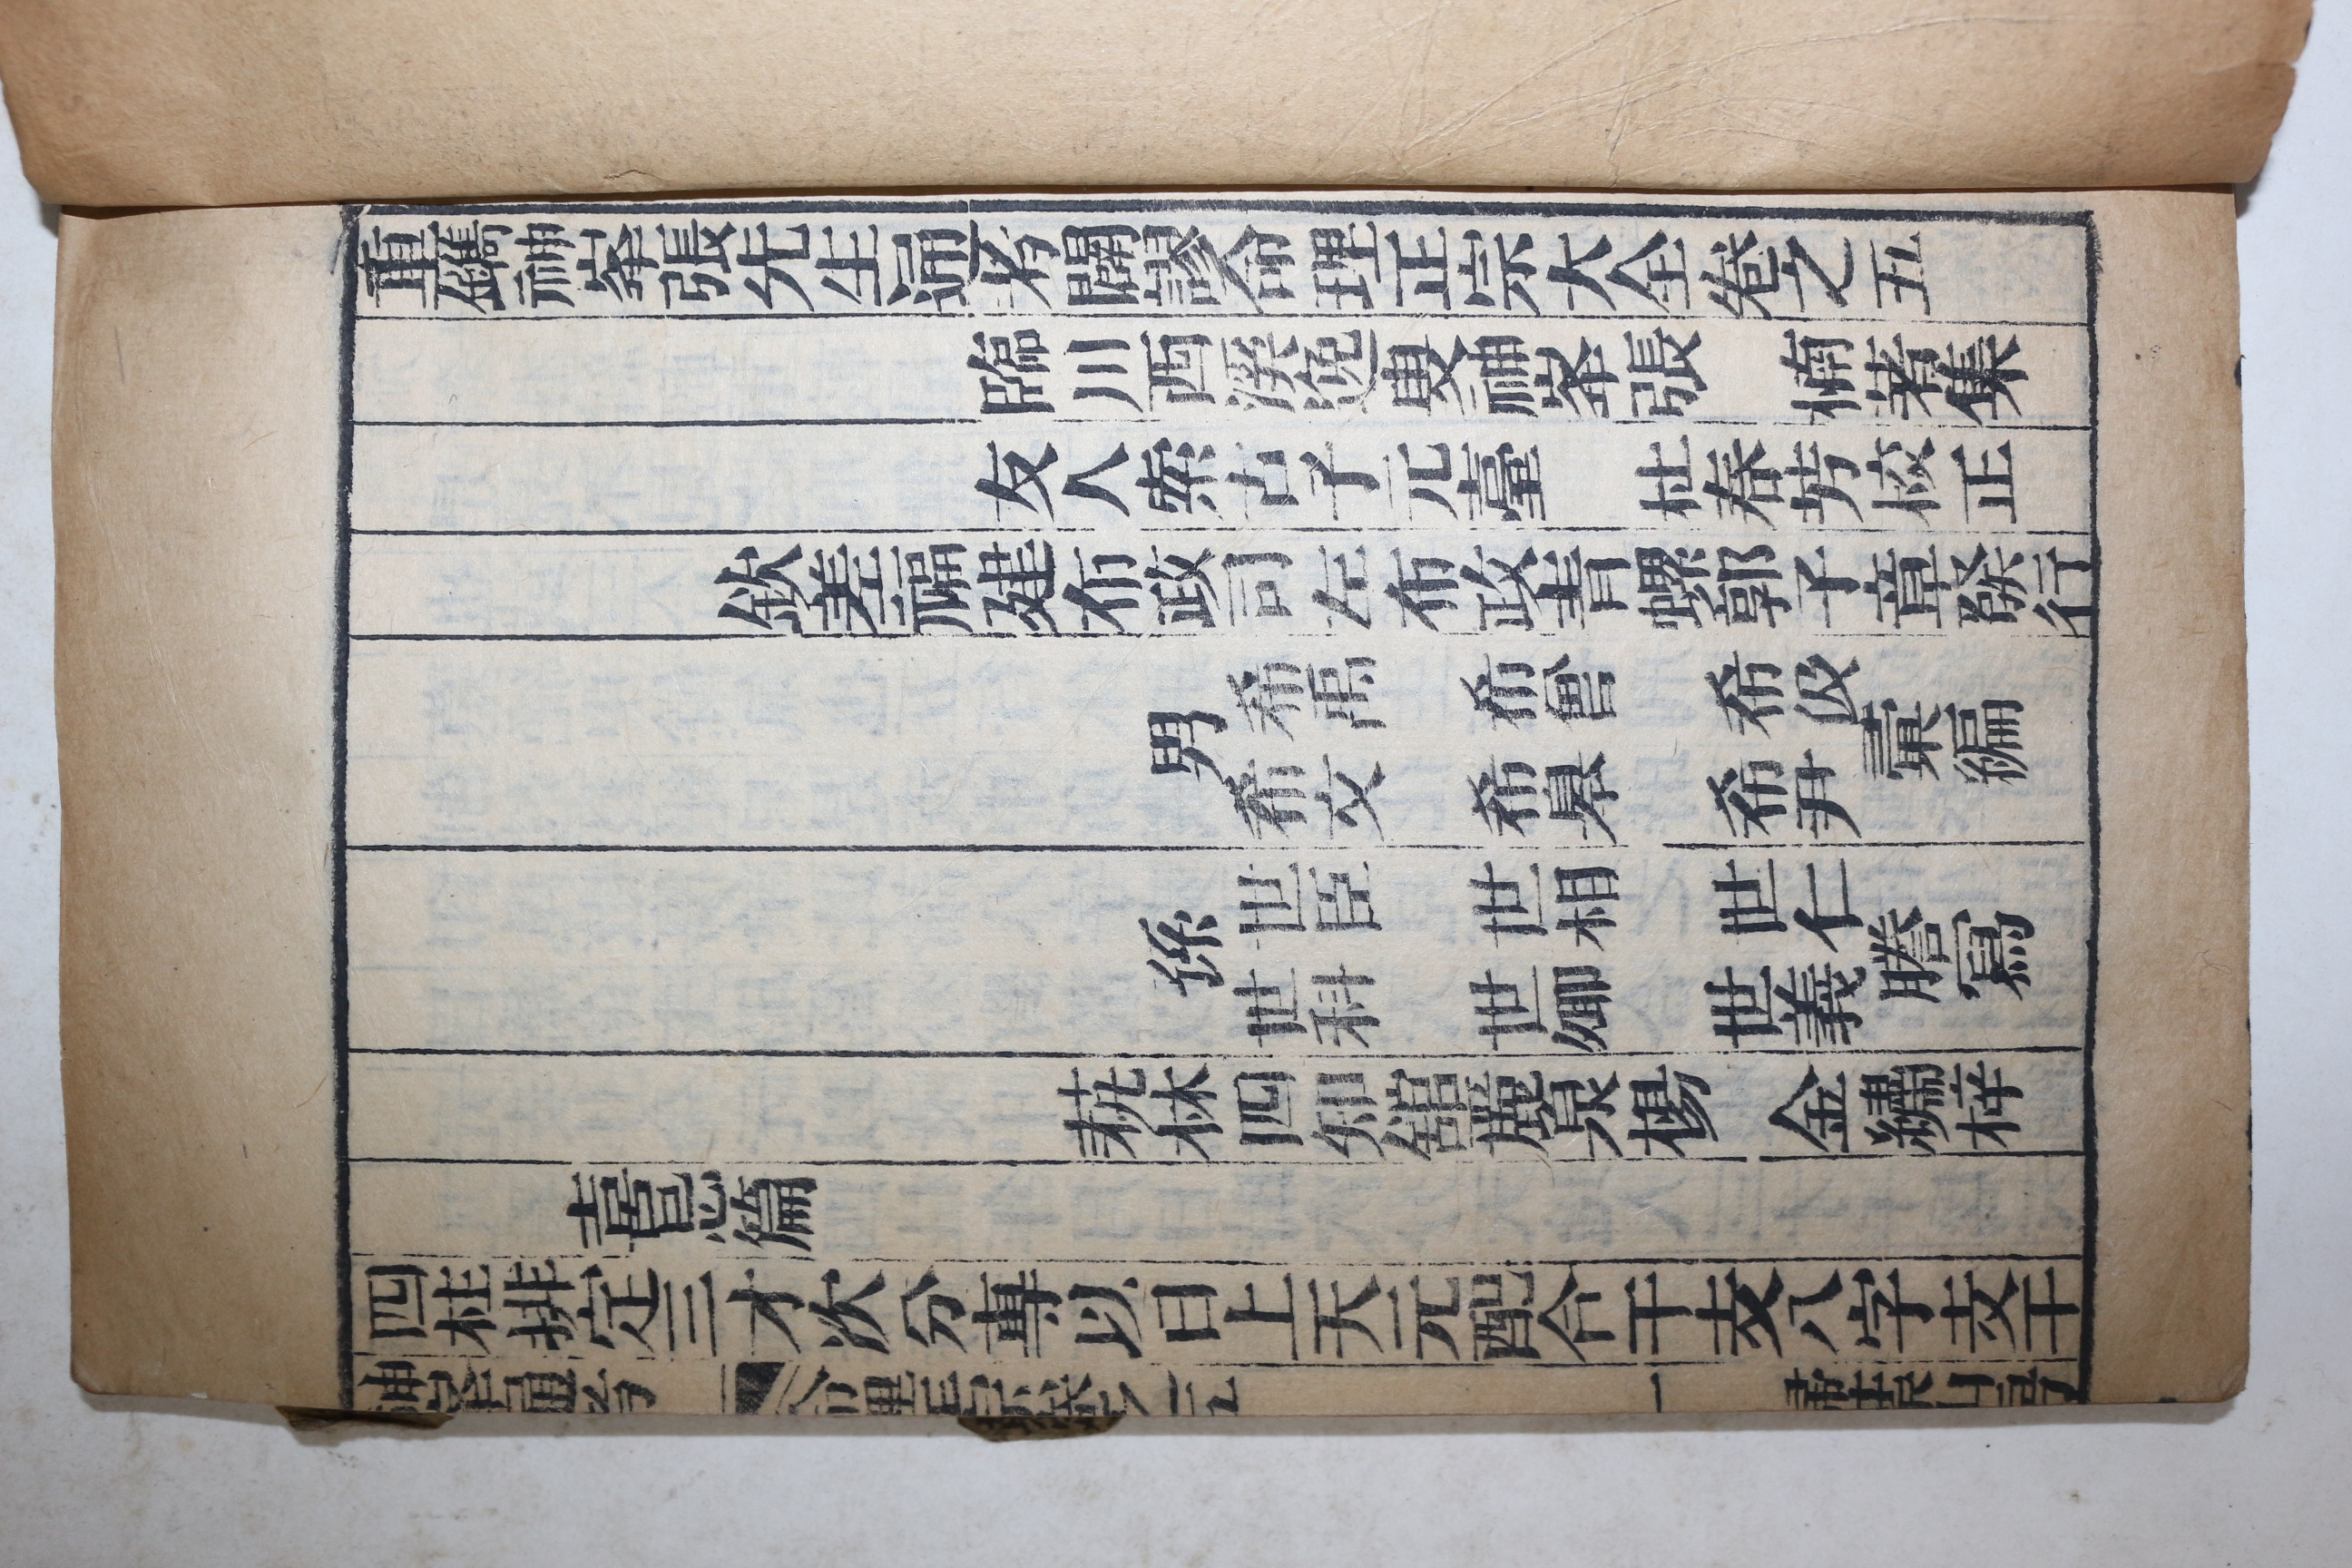 重鐫神峯張先生通考闢謬命理正宗大全卷之五
臨川西溪逸叟神峯張　楠著集
友人索古子元臺　杜春芳校正
欽差福建布政司左布政青螺郭子章發行
男
希禹　希曾　希伋
希文　希皋　希尹
彙編
係
世臣　世相　世仁
世科　世卿　世義
謄寫
林四知舘麗泉楊　金繡梓
喜忌篇
四柱排定三才次分專以日上天元配合干支八字支干
神峯通考　命理正宗卷之五　一　掃葉山房